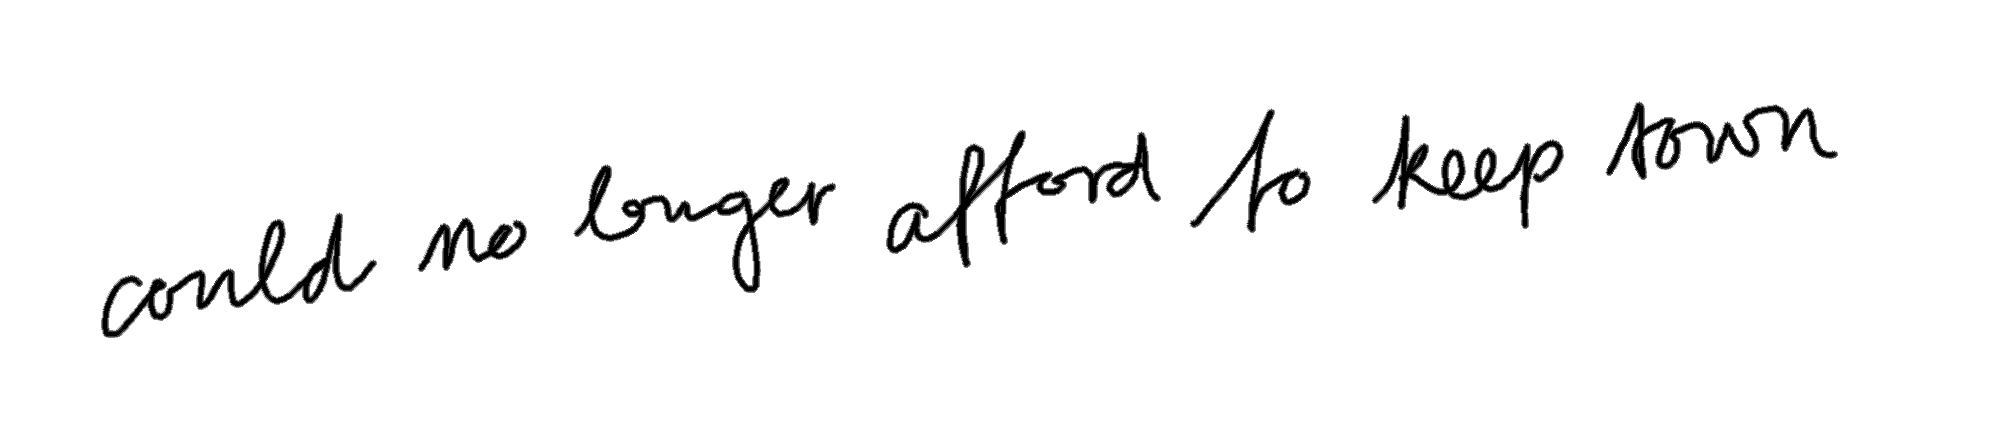 could no longer afford to keep town